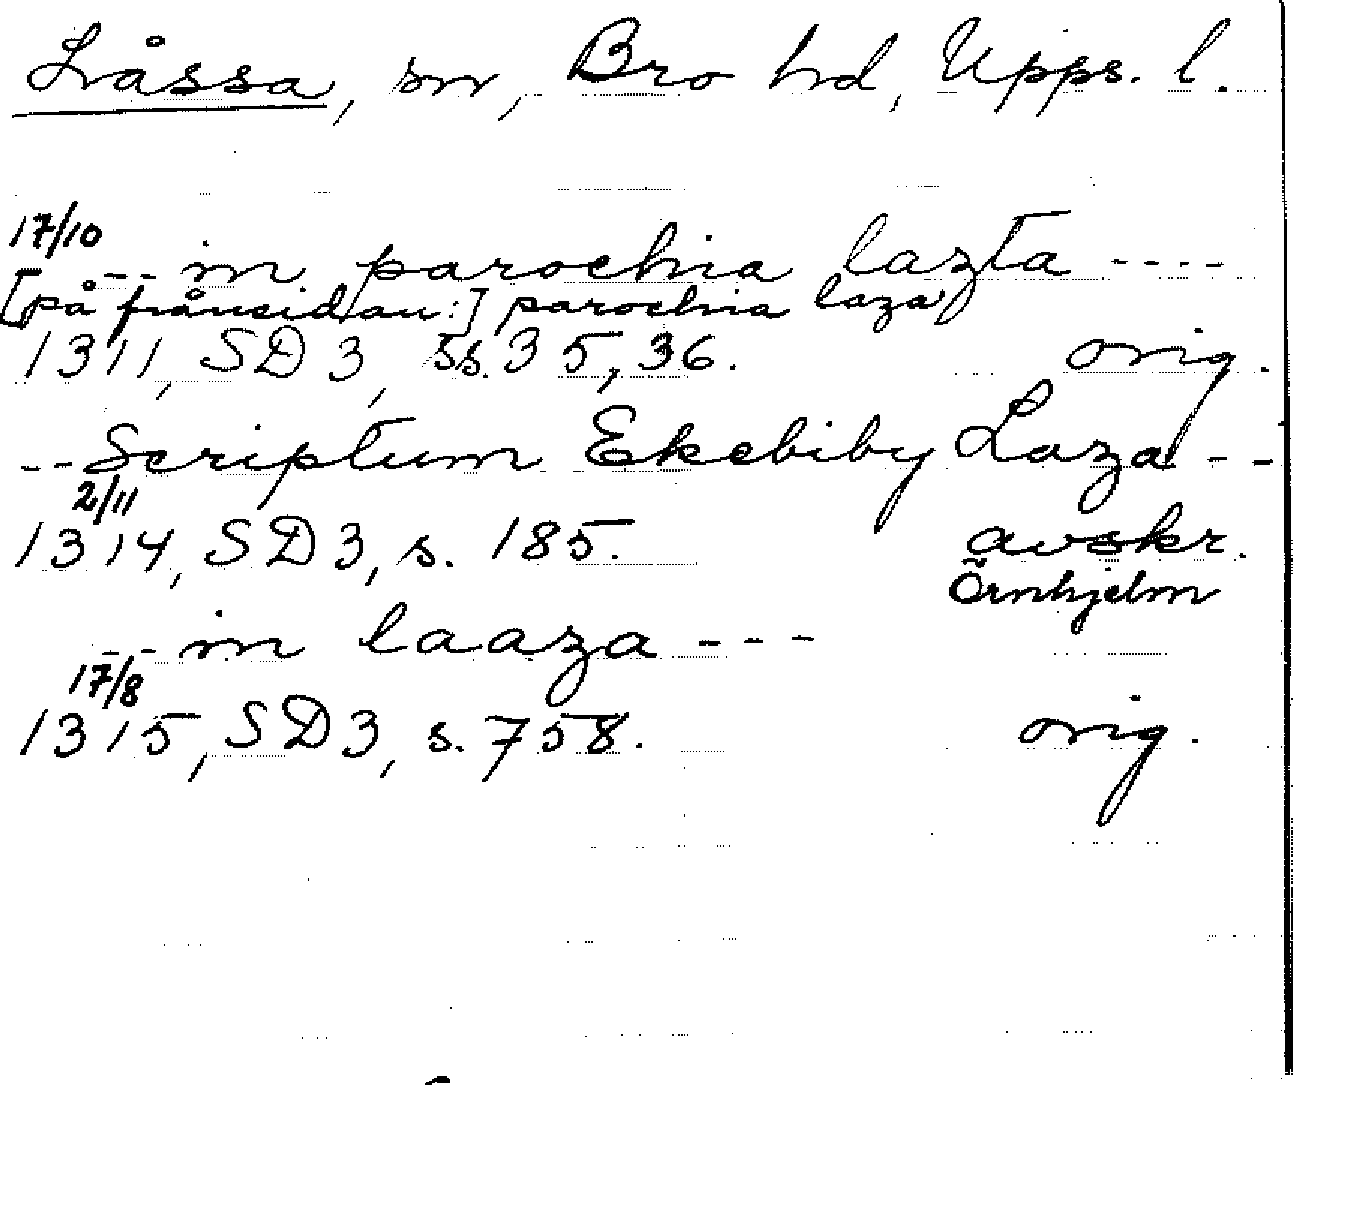 Låssa, sn, Bro hd, Upps. l.
17/10
-- in parochia lazta ----
[på frånsidan:] parochia laza
1311, SD 3, ss. 35, 36. orig.
-- Scriptum Ekebiby Laza --
2/11
1314, SD 3, s. 185. avskr.
Örnhjelm
-- in laaza ---
17/8
1315, SD 3, s. 758. orig.